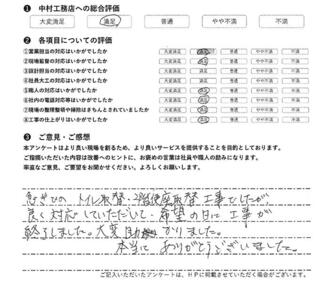 ❶ 中村工務店への総合評価
大変満足 満足 普通 やや不満 不満
❷ 各項目についての評価
①営業担当の対応はいかがでしたか 大変満足 満足 普通 やや不満 不満
②現場監督の対応はいかがでしたか 大変満足 満足 普通 やや不満 不満
③設計担当の対応はいかがでしたか 大変満足 満足 普通 やや不満 不満
④社員大工の対応はいかがでしたか 大変満足 満足 普通 やや不満 不満
⑤職人の対応はいかがでしたか 大変満足 満足 普通 やや不満 不満
⑥社内の電話対応等はいかがでしたか 大変満足 満足 普通 やや不満 不満
⑦現場の整理整頓や掃除はきちんとされていましたか 大変満足 満足 普通 やや不満 不満
⑧工事の仕上がりはいかがでしたか 大変満足 満足 普通 やや不満 不満
❸ ご意見・ご感想
本アンケートはより良い現場を創るため、より良いサービスを提供することを目的としております。
ご指摘いただいた内容は改善へのヒントに、お褒めの言葉は社員や職人の励みになります。
率直なご意見、ご要望をお聞かせください。よろしくお願いします。
急ぎでの トイレ取替・2階便座取替 工事でしたが、
良く対応していただいて・希望の日に 工事が
終了しました。大変助かりました。
本当に ありがとうございました。
ご記入いただいたアンケートは、HPに掲載させていただく場合がございます。